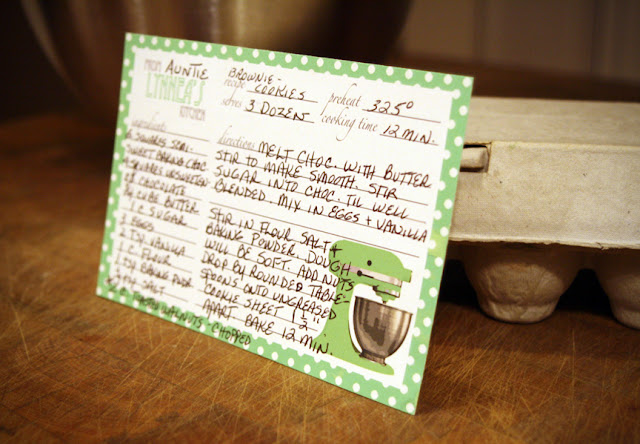 FROM AUNTIE
LYNNEA'S
KITCHEN
recipe BROWNIE-COOKIES
preheat 325°
serves 3 DOZEN
cooking time 12 MIN.
ingredients
SQUARES SEMI-
SWEET BAKING CHOC.
SQUARES UNSWEETEN
CHOCOLATE
CUBE BUTTER
C SUGAR
EGGS
TSP VANILLA
C. FLOUR
TSP BAKING POWD.
SALT
WALNUTS - CHOPPED
directions MELT CHOC. WITH BUTTER
STIR TO MAKE SMOOTH. STIR
SUGAR INTO CHOC. TIL WELL
BLENDED. MIX IN EGGS + VANILLA
STIR IN FLOUR SALT +
BAKING POWDER. DOUGH
WILL BE SOFT. ADD NUTS
DROP BY ROUNDED TABLE-
SPOONS ONTO UNGREASED
COOKIE SHEET 1½"
APART BAKE 12 MIN.